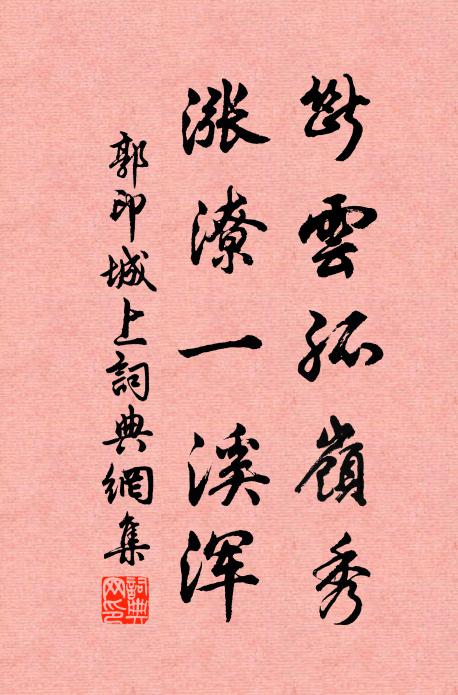 斷雲孤嶺秀
漲潦一溪渾
郭印城上詞典網集
詞典網印